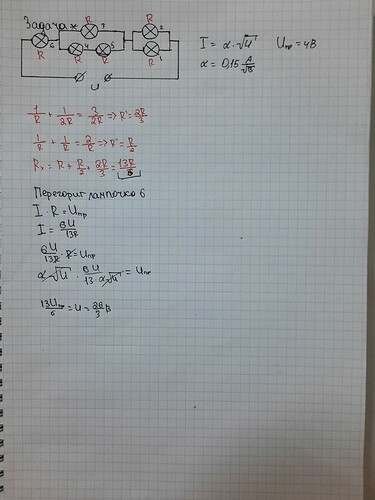 Задача*
R
R 3
R 2
6 R
4 5
R R
1 R
U
I = α·√U Uпр = 4В
α = 0,15 А/√В
1/R + 1/2R = 3/2R => R' = 2R/3
1/R + 1/R = 2/R => R'' = R/2
Rx = R + R/2 + 2R/3 = 13R/6
Перегорит лампочка 6
I · R = Uпр
I = 6U/13R
6U/13R · R = Uпр
α√U · 6U/13·α√U = Uпр
13Uпр/6 = U = 26/3 В